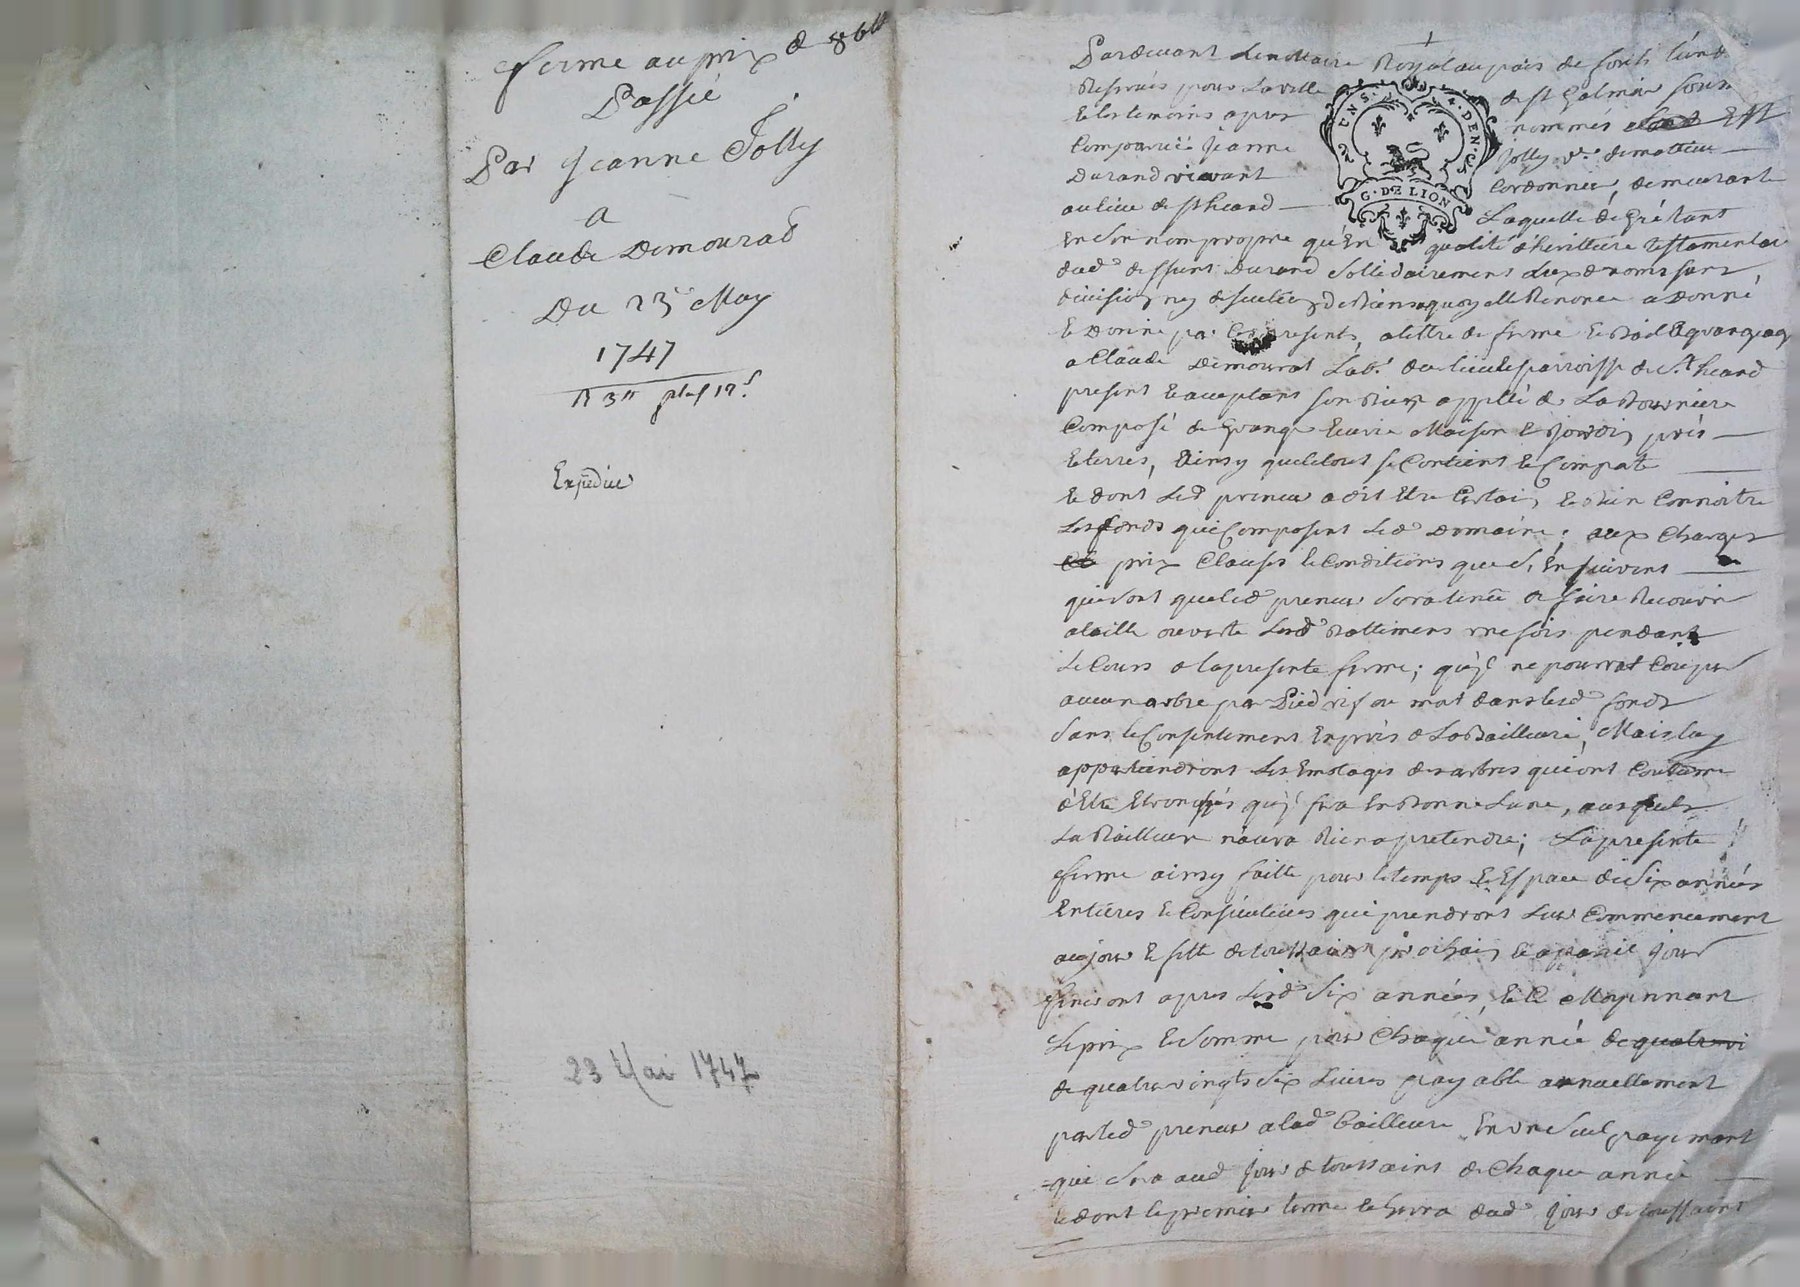 ferme au prix de 86 ll
Passée
Par Jeanne Jolly
a
Claude Demourat
Du 23e May
1747
R 3ll
Expediée
23 Mai 1747
Pardevant le nottaire Royal au païs de forêts
Reservés pour la ville de st Galmier sousné
et les temoins apres nommés Est
Comparüe Jeanne Jolly ve de mattieu
Durand vivant Cordonnier, demeurante
au lieu de st heand Laquelle de gré tant
en son nom propre qu'en qualité d'herittiere testamentaire
dud deffunt Durand sollidairement Lux d noms sans
division ny de rien a quoy elle Renonce a donné
et donne par Ces presents, a tittre de ferme
a Claude Demourat Labr du lieu et parroisse de St heand
present et acceptant son bien appellé de La
Composé de Grange Ecurie Maison et Jardin, prés
et terres, Ainsy que le tout se Contient et Comporte
et dont led preneur a dit Etre Certain, et bien Connoitre
Les fonds qui Composent led Domaine; aux Charges
prix Clauses et Conditions que s'ensuivent
qui sont que led preneur sera tenu de faire Recouvrir
a taille ouverte lesd battimens une fois pendant
le Cours de la presente ferme; qu'il ne pourrat Couper
aucun arbre par Pied vif ou mort dans lesd fonds
sans le Consentement Exprés de La Bailleure, Mais luy
appartiendront les Emolages des arbres qui ont Coutume
d'Etre Etronchés qu'il fera En Bonne Lune, ausquels
La Bailleure n'aura Rien a pretendre; La presente
ferme ainsy faitte pour le temps et Espace de Six années
Entieres et Consécutives qui prendront Leur Commencement
au jour et fette de toussaints prochain, et a pareil jour
finiront apres lesd Six années, Et Moyennant
Le prix et somme pour Chaque année de quatrevi
de quatrevingts Six Livres payable annuellement
par led preneur a lad bailleure En un seul payement
qui sera aud jour de toussaint de Chaque année
et dont le premier terme dud jour de toussaint